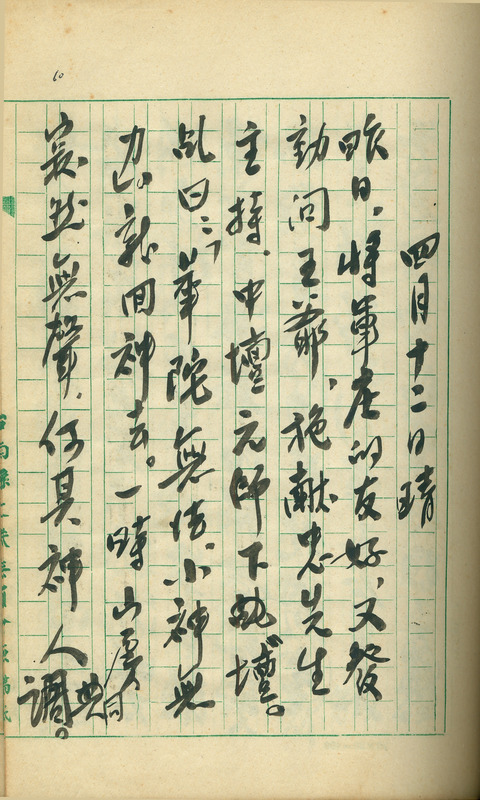 10
四月十二日晴
昨日，將軍庄的友好，又發
動問王爺，施獻忠先生
主持，中壇元帥下乩壇。
乩曰：「華院無情，小神無
力，就回神去。一時山房
寂然無聲，何其神人共
調。